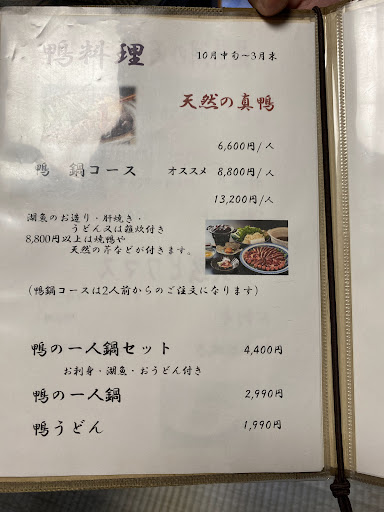 鴨料理
10月中旬〜3月末
天然の真鴨
6,600円/人
鴨 鍋コース オススメ 8,800円/人
13,200円/人
湖魚のお造り・肝焼き・
うどん又は雑炊付き
8,800円以上は焼鴨や
天然の芹などが付きます。
(鴨鍋コースは2人前からのご注文になります)
鴨の一人鍋セット 4,400円
お刺身・湖魚・おうどん付き
鴨の一人鍋 2,990円
鴨うどん 1,990円